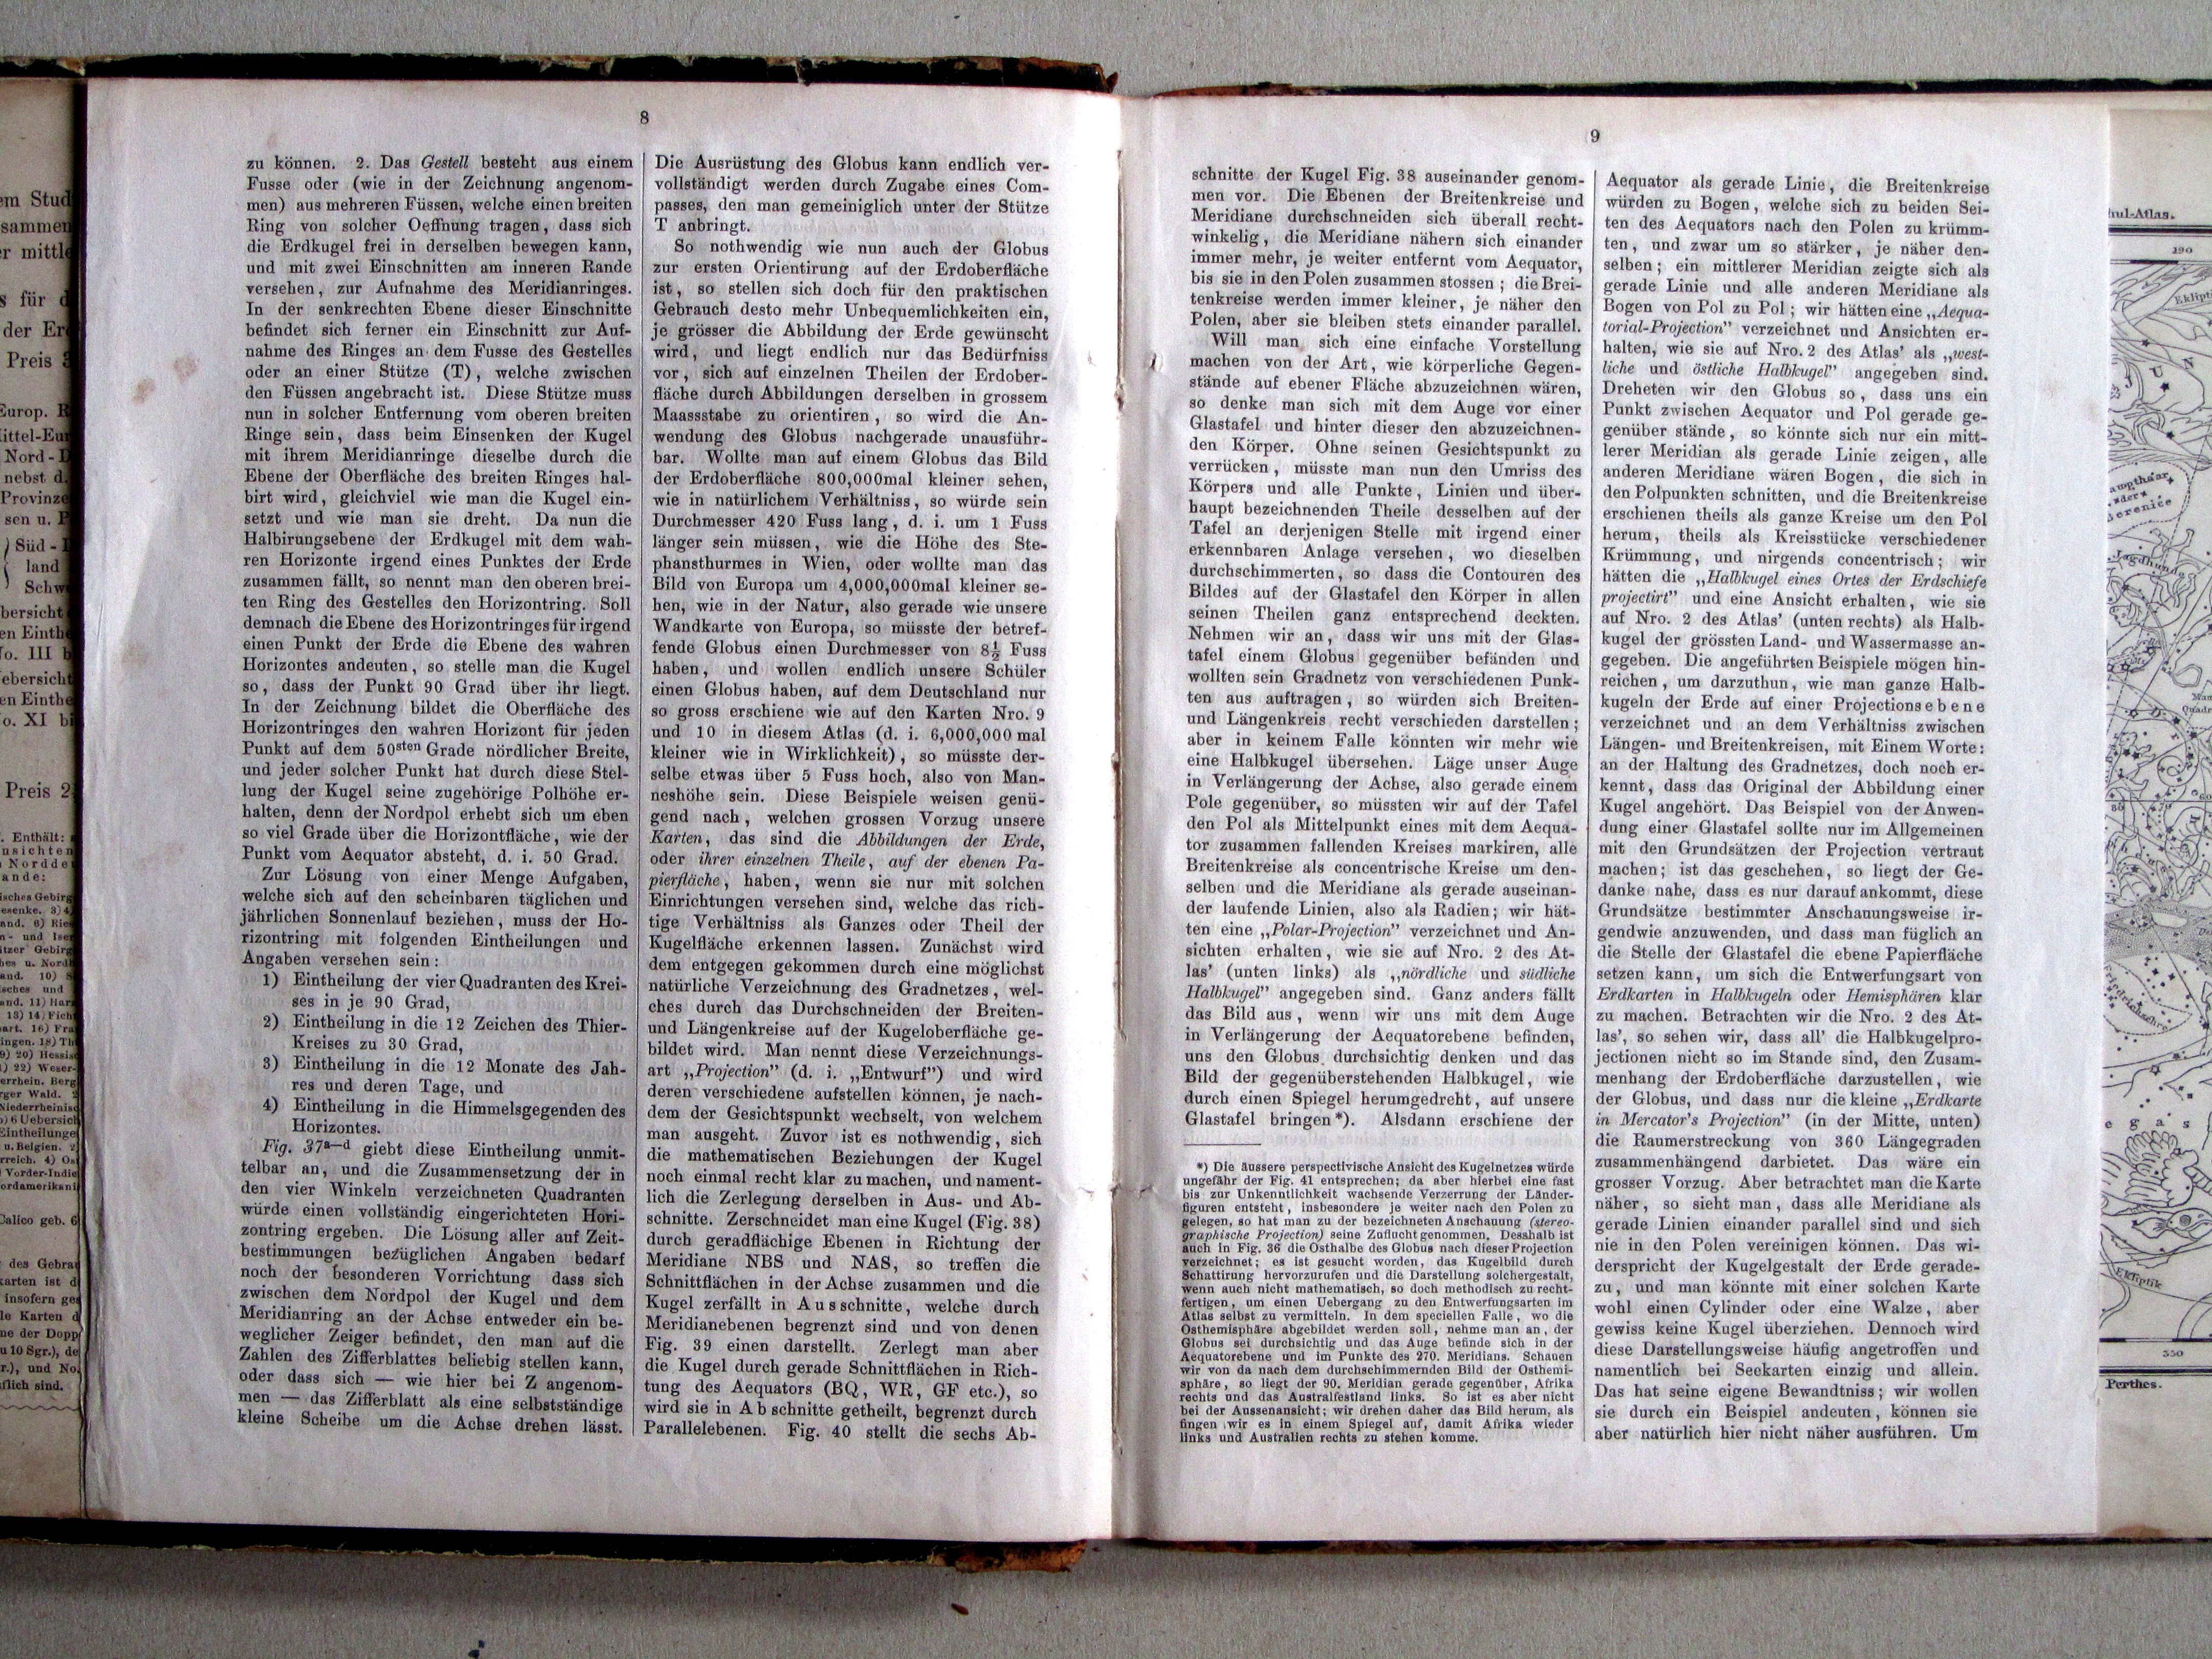 8
zu können. 2. Das Gestell besteht aus einem
Fusse oder (wie in der Zeichnung angenom-
men) aus mehreren Füssen, welche einen breiten
Ring von solcher Oeffnung tragen, dass sich
die Erdkugel frei in derselben bewegen kann,
und mit zwei Einschnitten am inneren Rande
versehen, zur Aufnahme des Meridianringes.
In der senkrechten Ebene dieser Einschnitte
befindet sich ferner ein Einschnitt zur Auf-
nahme des Ringes an dem Fusse des Gestelles
oder an einer Stütze (T), welche zwischen
den Füssen angebracht ist. Diese Stütze muss
nun in solcher Entfernung vom oberen breiten
Ringe sein, dass beim Einsenken der Kugel
mit ihrem Meridianringe dieselbe durch die
Ebene der Oberfläche des breiten Ringes hal-
birt wird, gleichviel wie man die Kugel ein-
setzt und wie man sie dreht. Da nun die
Halbirungsebene der Erdkugel mit dem wah-
ren Horizonte irgend eines Punktes der Erde
zusammen fällt, so nennt man den oberen brei-
ten Ring des Gestelles den Horizontring. Soll
demnach die Ebene des Horizontringes für irgend
einen Punkt der Erde die Ebene des wahren
Horizontes andeuten, so stelle man die Kugel
so, dass der Punkt 90 Grad über ihr liegt.
In der Zeichnung bildet die Oberfläche des
Horizontringes den wahren Horizont für jeden
Punkt auf dem 50sten Grade nördlicher Breite,
und jeder solcher Punkt hat durch diese Stel-
lung der Kugel seine zugehörige Polhöhe er-
halten, denn der Nordpol erhebt sich um eben
so viel Grade über die Horizontfläche, wie der
Punkt vom Aequator absteht, d. i. 50 Grad.
Zur Lösung von einer Menge Aufgaben,
welche sich auf den scheinbaren täglichen und
jährlichen Sonnenlauf beziehen, muss der Ho-
rizontring mit folgenden Eintheilungen und
Angaben versehen sein:
1) Eintheilung der vier Quadranten des Krei-
ses in je 90 Grad,
2) Eintheilung in die 12 Zeichen des Thier-
Kreises zu 30 Grad,
3) Eintheilung in die 12 Monate des Jah-
res und deren Tage, und
4) Eintheilung in die Himmelsgegenden des
Horizontes.
Fig. 37a—d giebt diese Eintheilung unmit-
telbar an, und die Zusammensetzung der in
den vier Winkeln verzeichneten Quadranten
würde einen vollständig eingerichteten Hori-
zontring ergeben. Die Lösung aller auf Zeit-
bestimmungen bezüglichen Angaben bedarf
noch der besonderen Vorrichtung dass sich
zwischen dem Nordpol der Kugel und dem
Meridianring an der Achse entweder ein be-
weglicher Zeiger befindet, den man auf die
Zahlen des Zifferblattes beliebig stellen kann,
oder dass sich — wie hier bei Z angenom-
men — das Zifferblatt als eine selbstständige
kleine Scheibe um die Achse drehen lässt.
Die Ausrüstung des Globus kann endlich ver-
vollständigt werden durch Zugabe eines Com-
passes, den man gemeiniglich unter der Stütze
T anbringt.
So nothwendig wie nun auch der Globus
zur ersten Orientirung auf der Erdoberfläche
ist, so stellen sich doch für den praktischen
Gebrauch desto mehr Unbequemlichkeiten ein,
je grösser die Abbildung der Erde gewünscht
wird, und liegt endlich nur das Bedürfniss
vor, sich auf einzelnen Theilen der Erdober-
fläche durch Abbildungen derselben in grossem
Maassstabe zu orientiren, so wird die An-
wendung des Globus nachgerade unausführ-
bar. Wollte man auf einem Globus das Bild
der Erdoberfläche 800,000mal kleiner sehen,
wie in natürlichem Verhältniss, so würde sein
Durchmesser 420 Fuss lang, d. i. um 1 Fuss
länger sein müssen, wie die Höhe des Ste-
phansthurmes in Wien, oder wollte man das
Bild von Europa um 4,000,000mal kleiner se-
hen, wie in der Natur, also gerade wie unsere
Wandkarte von Europa, so müsste der betref-
fende Globus einen Durchmesser von 8½ Fuss
haben, und wollen endlich unsere Schüler
einen Globus haben, auf dem Deutschland nur
so gross erschiene wie auf den Karten Nro. 9
und 10 in diesem Atlas (d. i. 6,000,000 mal
kleiner wie in Wirklichkeit), so müsste der-
selbe etwas über 5 Fuss hoch, also von Man-
neshöhe sein. Diese Beispiele weisen genü-
gend nach, welchen grossen Vorzug unsere
Karten, das sind die Abbildungen der Erde,
oder ihrer einzelnen Theile, auf der ebenen Pa-
pierfläche, haben, wenn sie nur mit solchen
Einrichtungen versehen sind, welche das rich-
tige Verhältniss als Ganzes oder Theil der
Kugelfläche erkennen lassen. Zunächst wird
dem entgegen gekommen durch eine möglichst
natürliche Verzeichnung des Gradnetzes, wel-
ches durch das Durchschneiden der Breiten-
und Längenkreise auf der Kugeloberfläche ge-
bildet wird. Man nennt diese Verzeichnungs-
art „Projection” (d. i. „Entwurf”) und wird
deren verschiedene aufstellen können, je nach-
dem der Gesichtspunkt wechselt, von welchem
man ausgeht. Zuvor ist es nothwendig, sich
die mathematischen Beziehungen der Kugel
noch einmal recht klar zu machen, und nament-
lich die Zerlegung derselben in Aus- und Ab-
schnitte. Zerschneidet man eine Kugel (Fig. 38)
durch geradflächige Ebenen in Richtung der
Meridiane NBS und NAS, so treffen die
Schnittflächen in der Achse zusammen und die
Kugel zerfällt in Ausschnitte, welche durch
Meridianebenen begrenzt sind und von denen
Fig. 39 einen darstellt. Zerlegt man aber
die Kugel durch gerade Schnittflächen in Rich-
tung des Aequators (BQ, WR, GF etc.), so
wird sie in Abschnitte getheilt, begrenzt durch
Parallelebenen. Fig. 40 stellt die sechs Ab-
9
schnitte der Kugel Fig. 38 auseinander genom-
men vor. Die Ebenen der Breitenkreise und
Meridiane durchschneiden sich überall recht-
winkelig, die Meridiane nähern sich einander
immer mehr, je weiter entfernt vom Aequator,
bis sie in den Polen zusammen stossen; die Brei-
tenkreise werden immer kleiner, je näher den
Polen, aber sie bleiben stets einander parallel.
Will man sich eine einfache Vorstellung
machen von der Art, wie körperliche Gegen-
stände auf ebener Fläche abzuzeichnen wären,
so denke man sich mit dem Auge vor einer
Glastafel und hinter dieser den abzuzeichnen-
den Körper. Ohne seinen Gesichtspunkt zu
verrücken, müsste man nun den Umriss des
Körpers und alle Punkte, Linien und über-
haupt bezeichnenden Theile desselben auf der
Tafel an derjenigen Stelle mit irgend einer
erkennbaren Anlage versehen, wo dieselben
durchschimmerten, so dass die Contouren des
Bildes auf der Glastafel den Körper in allen
seinen Theilen ganz entsprechend deckten.
Nehmen wir an, dass wir uns mit der Glas-
tafel einem Globus gegenüber befänden und
wollten sein Gradnetz von verschiedenen Punk-
ten aus auftragen, so würden sich Breiten-
und Längenkreis recht verschieden darstellen;
aber in keinem Falle könnten wir mehr wie
eine Halbkugel übersehen. Läge unser Auge
in Verlängerung der Achse, also gerade einem
Pole gegenüber, so müssten wir auf der Tafel
den Pol als Mittelpunkt eines mit dem Aequa-
tor zusammen fallenden Kreises markiren, alle
Breitenkreise als concentrische Kreise um den-
selben und die Meridiane als gerade auseinan-
der laufende Linien, also als Radien; wir hät-
ten eine „Polar-Projection” verzeichnet und An-
sichten erhalten, wie sie auf Nro. 2 des At-
las' (unten links) als „nördliche und südliche
Halbkugel” angegeben sind. Ganz anders fällt
das Bild aus, wenn wir uns mit dem Auge
in Verlängerung der Aequatorebene befinden,
uns den Globus durchsichtig denken und das
Bild der gegenüberstehenden Halbkugel, wie
durch einen Spiegel herumgedreht, auf unsere
Glastafel bringen*). Alsdann erschiene der
*) Die äussere perspectivische Ansicht des Kugelnetzes würde
ungefähr der Fig. 41 entsprechen; da aber hierbei eine fast
bis zur Unkenntlichkeit wachsende Verzerrung der Länder-
figuren entsteht, insbesondere je weiter nach den Polen zu
gelegen, so hat man zu der bezeichneten Anschauung (stereo-
graphische Projection) seine Zuflucht genommen. Desshalb ist
auch in Fig. 36 die Osthalbe des Globus nach dieser Projection
verzeichnet; es ist gesucht worden, das Kugelbild durch
Schattirung hervorzurufen und die Darstellung solchergestalt,
wenn auch nicht mathematisch, so doch methodisch zu recht-
fertigen, um einen Uebergang zu den Entwerfungsarten im
Atlas selbst zu vermitteln. In dem speciellen Falle, wo die
Osthemisphäre abgebildet werden soll, nehme man an, der
Globus sei durchsichtig und das Auge befinde sich in der
Aequatorebene und im Punkte des 270. Meridians. Schauen
wir von da nach dem durchschimmernden Bild der Osthemi-
sphäre, so liegt der 90. Meridian gerade gegenüber, Afrika
rechts und das Australfestland links. So ist es aber nicht
bei der Aussenansicht; wir drehen daher das Bild herum, als
fingen wir es in einem Spiegel auf, damit Afrika wieder
links und Australien rechts zu stehen komme.
Aequator als gerade Linie, die Breitenkreise
würden zu Bogen, welche sich zu beiden Sei-
ten des Aequators nach den Polen zu krümm-
ten, und zwar um so stärker, je näher den-
selben; ein mittlerer Meridian zeigte sich als
gerade Linie und alle anderen Meridiane als
Bogen von Pol zu Pol; wir hätten eine „Aequa-
torial-Projection” verzeichnet und Ansichten er-
halten, wie sie auf Nro. 2 des Atlas' als „west-
liche und östliche Halbkugel” angegeben sind.
Dreheten wir den Globus so, dass uns ein
Punkt zwischen Aequator und Pol gerade ge-
genüber stände, so könnte sich nur ein mitt-
lerer Meridian als gerade Linie zeigen, alle
anderen Meridiane wären Bogen, die sich in
den Polpunkten schnitten, und die Breitenkreise
erschienen theils als ganze Kreise um den Pol
herum, theils als Kreisstücke verschiedener
Krümmung, und nirgends concentrisch; wir
hätten die „Halbkugel eines Ortes der Erdschiefe
projectirt” und eine Ansicht erhalten, wie sie
auf Nro. 2 des Atlas' (unten rechts) als Halb-
kugel der grössten Land- und Wassermasse an-
gegeben. Die angeführten Beispiele mögen hin-
reichen, um darzuthun, wie man ganze Halb-
kugeln der Erde auf einer Projectionsebene
verzeichnet und an dem Verhältniss zwischen
Längen- und Breitenkreisen, mit Einem Worte:
an der Haltung des Gradnetzes, doch noch er-
kennt, dass das Original der Abbildung einer
Kugel angehört. Das Beispiel von der Anwen-
dung einer Glastafel sollte nur im Allgemeinen
mit den Grundsätzen der Projection vertraut
machen; ist das geschehen, so liegt der Ge-
danke nahe, dass es nur darauf ankommt, diese
Grundsätze bestimmter Anschauungsweise ir-
gendwie anzuwenden, und dass man füglich an
die Stelle der Glastafel die ebene Papierfläche
setzen kann, um sich die Entwerfungsart von
Erdkarten in Halbkugeln oder Hemisphären klar
zu machen. Betrachten wir die Nro. 2 des At-
las', so sehen wir, dass all' die Halbkugelpro-
jectionen nicht so im Stande sind, den Zusam-
menhang der Erdoberfläche darzustellen, wie
der Globus, und dass nur die kleine „Erdkarte
in Mercator's Projection” (in der Mitte, unten)
die Raumerstreckung von 360 Längegraden
zusammenhängend darbietet. Das wäre ein
grosser Vorzug. Aber betrachtet man die Karte
näher, so sieht man, dass alle Meridiane als
gerade Linien einander parallel sind und sich
nie in den Polen vereinigen können. Das wi-
derspricht der Kugelgestalt der Erde gerade-
zu, und man könnte mit einer solchen Karte
wohl einen Cylinder oder eine Walze, aber
gewiss keine Kugel überziehen. Dennoch wird
diese Darstellungsweise häufig angetroffen und
namentlich bei Seekarten einzig und allein.
Das hat seine eigene Bewandtniss; wir wollen
sie durch ein Beispiel andeuten, können sie
aber natürlich hier nicht näher ausführen. Um
290
Ekliptik
330
Perthes.